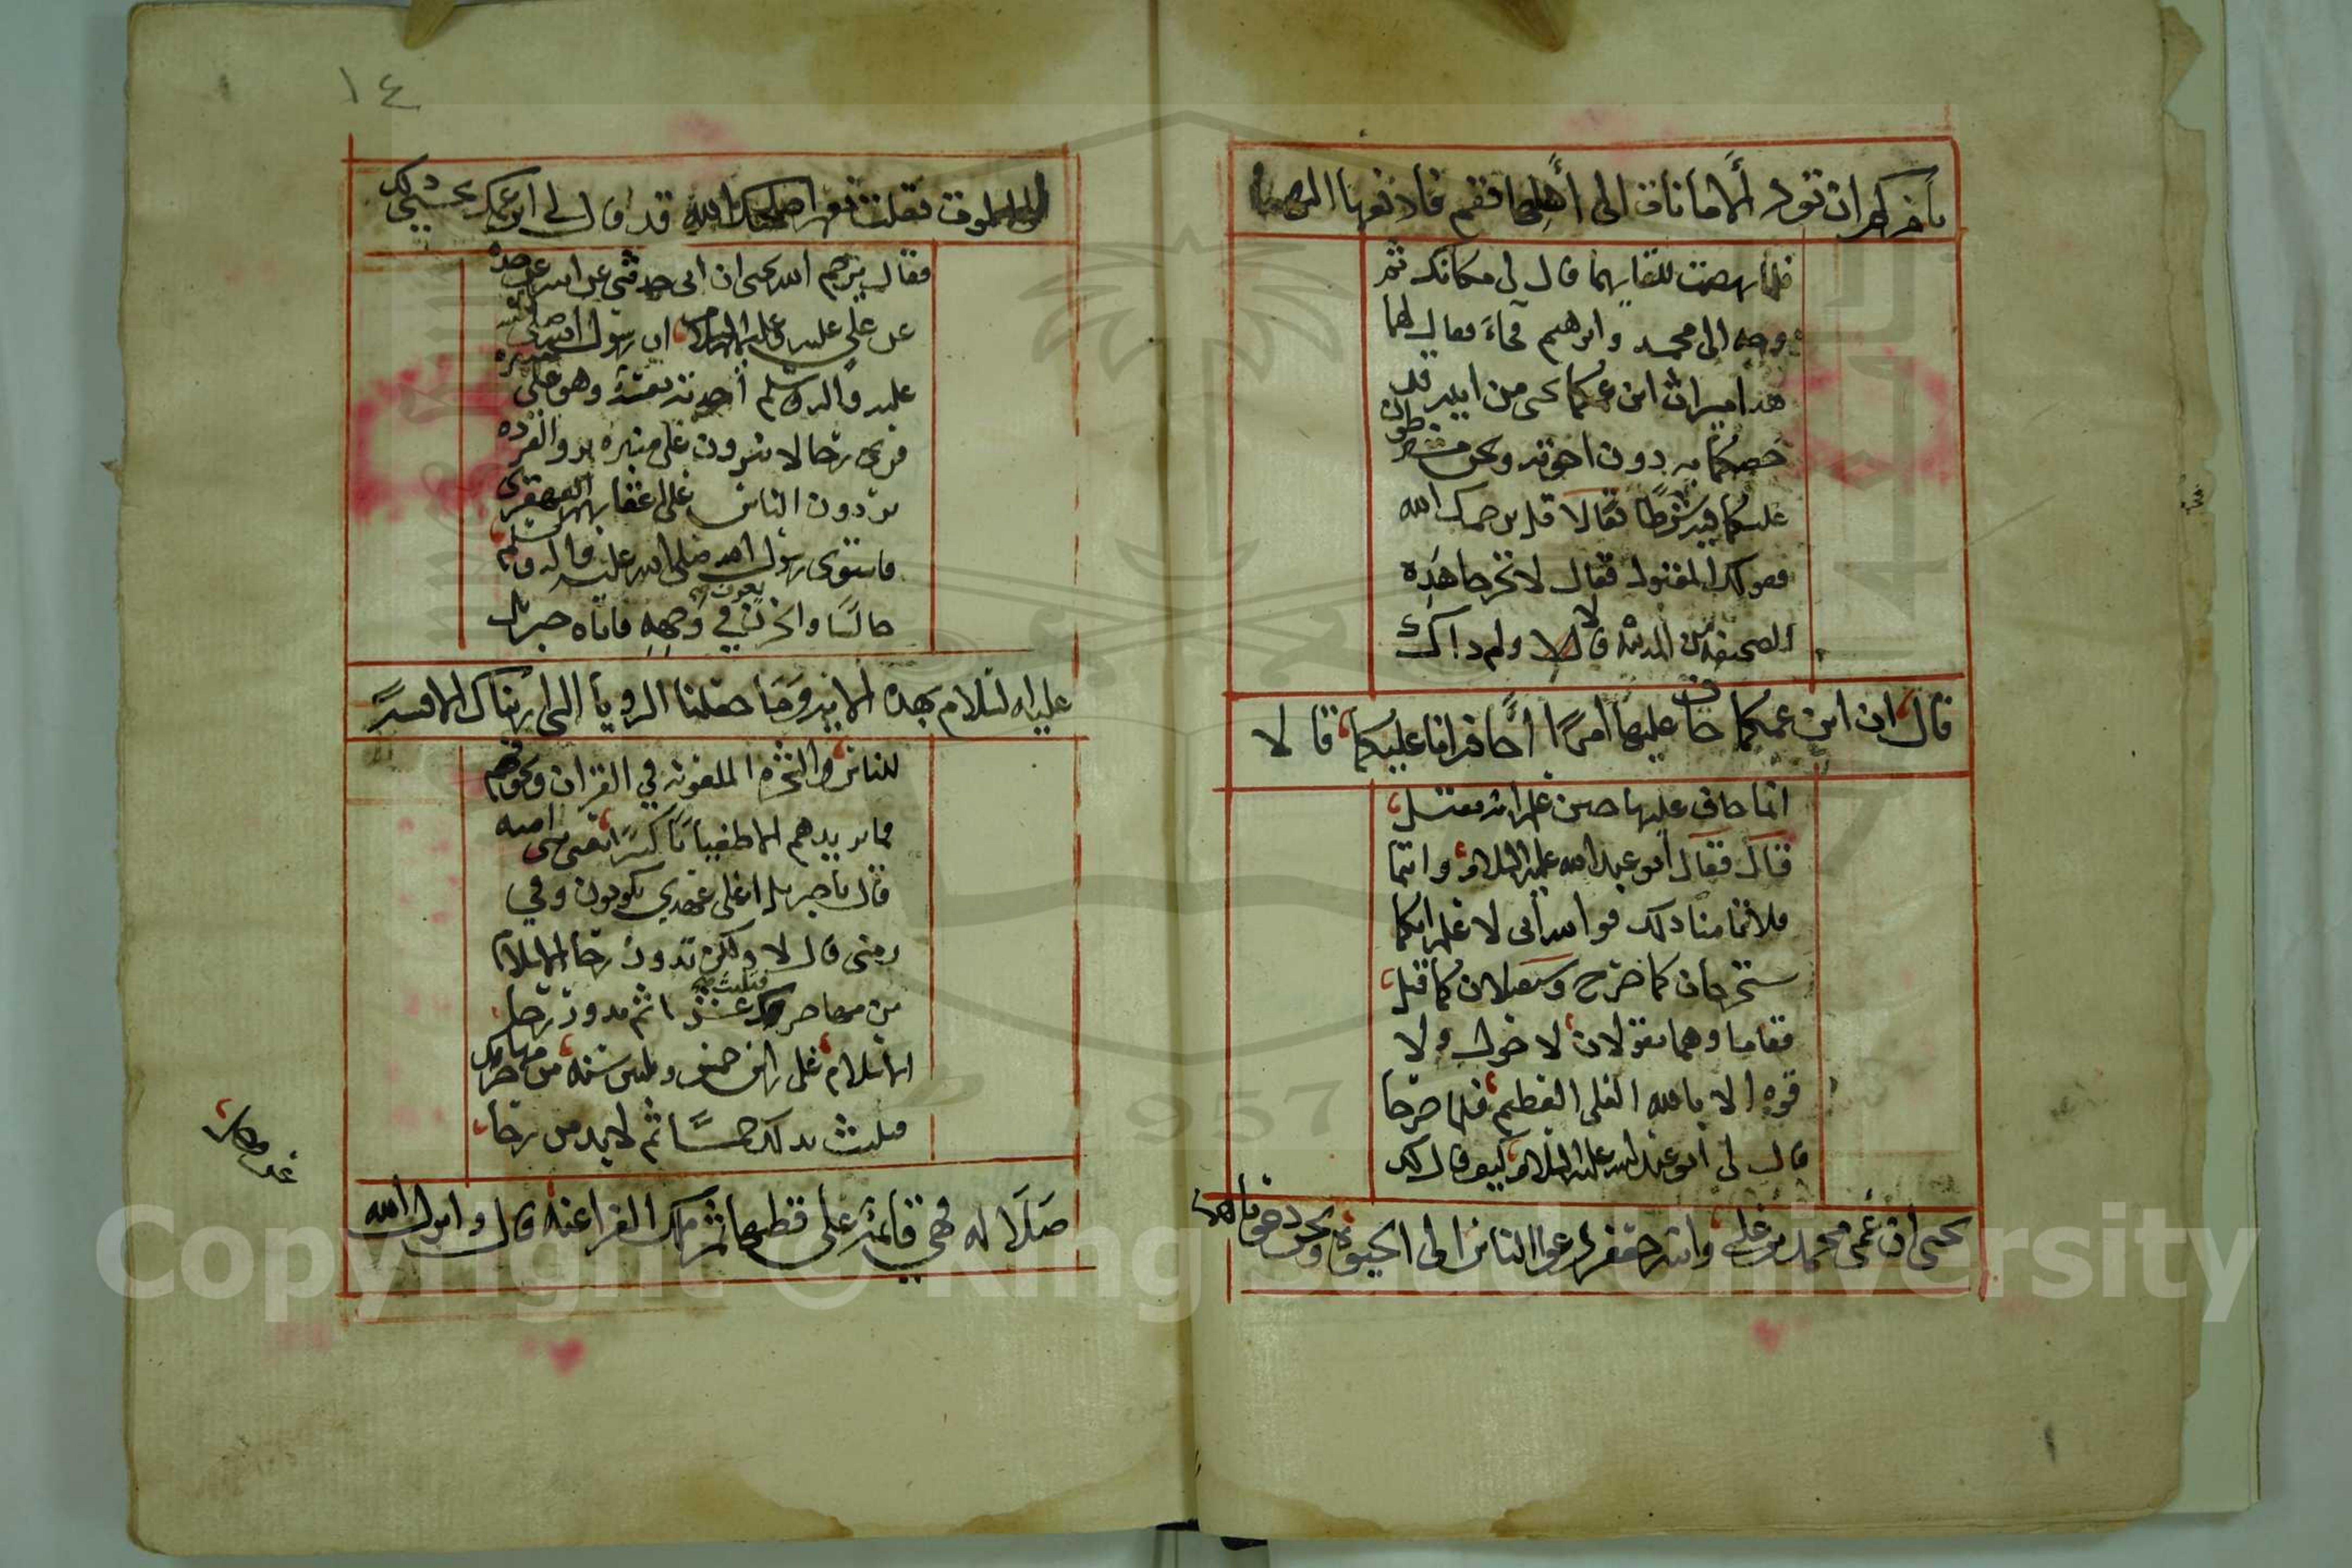 يأمركم ان تؤدوا الامانات الى أهلها فقم فادفعها اليهما
فلما نهضت للقائهما قال لي مكانك ثم
وجه الى محمد وابرهيم فجاءا فقال لهما
هذا ميراث ابن عمكما يحيى من ابيه قد
خصكما به دون اخوته ونحن مشترطون
عليكما فيه شرطًا فقالا قل يرحمك الله
فقولك المقبول فقال لا تخرجا بهذه
الصحيفة من المدينة قالا ولم ذاك
قال ان ابن عمكما خاف عليها امرًا أخافه انا عليكما قالا
انما خاف عليها حين علم انه يقتل
قال فقال أبو عبد الله عليه السلام وانتما
فلا تأمنا ذلك فوالله أني لا علم انكما
ستخرجان كما خرج وستقتلان كما قتل
فقاما وهما يقولان لا حول ولا
قوة الا بالله العلي العظيم فلما خرجا
قال لي أبو عبد الله عليه السلام كيف قال لك
يحيى ان عمي محمد بن علي وابنه جعفر دعوا الناس الى الحيوة ونحن دعوناهم
١٤
الى الموت فقلت نعم اصلحك الله قد قال لي ابن عمك يحيى ذلك
فقال يرحم الله يحيى ان ابي حدثني عن ابيه عن جده
عن علي عليه وعليهم السلام ان رسول الله صلى الله
عليه وآله وسلم أخذته نعسة وهو على منبره
فرأى رجالا ينزون على منبره نزو القرده
يردون الناس على اعقابهم القهقرى
فاستوى رسول الله صلى الله عليه وآله وسلم
جالسًا والحزن يعرف في وجهه فاتاه جبريل
عليه السلام بهذه الاية وما جعلنا الرويا التي اريناك الا فتنة
للناس والشجرة الملعونة في القران ونخوفهم
فما يزيدهم الا طغيانًا كبيرًا يعني بني اميه
قال يا جبريل اعلى عهدي يكونون وفي
زمني قال لا ولكن تدور رحا الاسلام
من مهاجرك فتلبث عشرا ثم تدور رحا
الاسلام على راس خمس وثلثين سنة من مهاجرك
فتلبث بذلك خمسًا ثم لا بد من رحا
ضلالة هي قائمة على قطبها ثم ملك الفراعنة قال وانزل الله